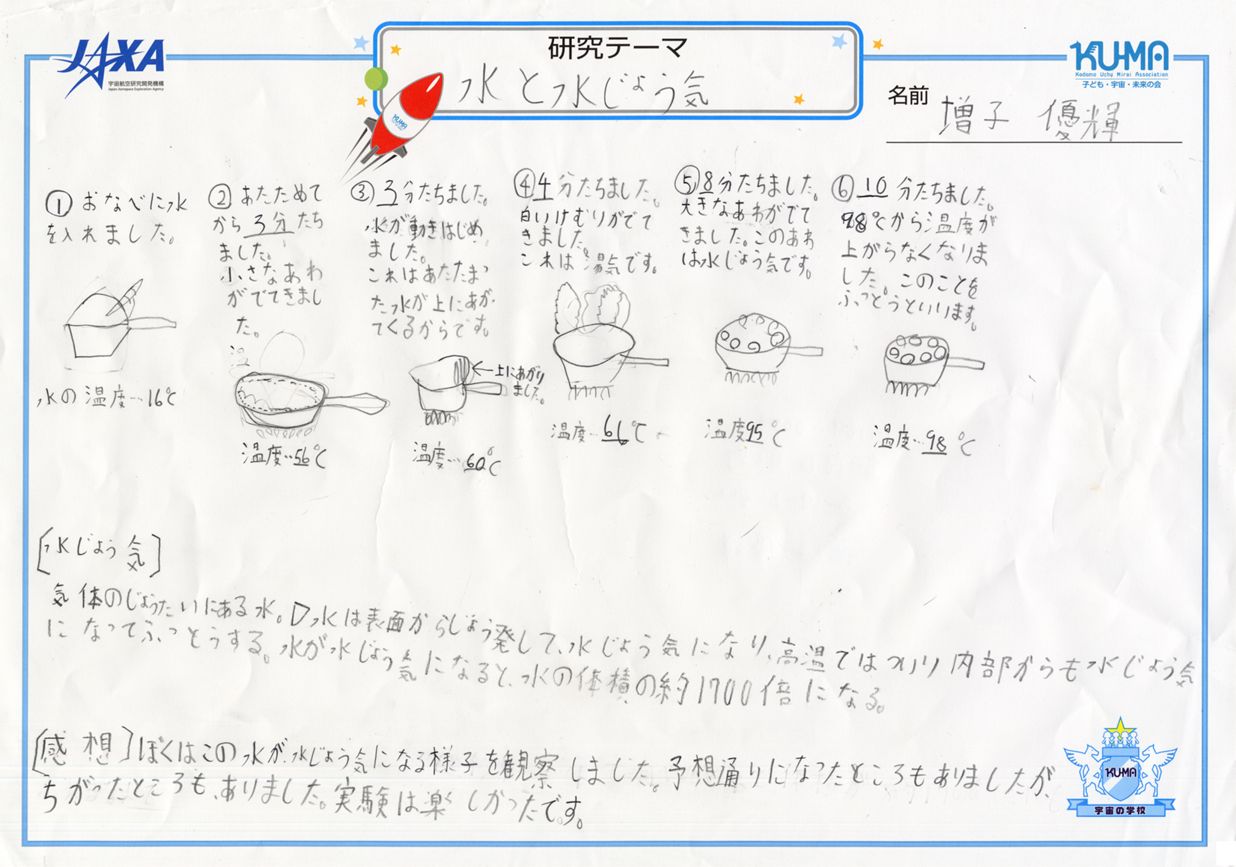 JAXA
宇宙航空研究開発機構
Japan Aerospace Exploration Agency
研究テーマ
水と水じょう気
KUMA
KUMA
Kodomo Uchu Mirai Association
子ども・宇宙・未来の会
名前
増子 優輝
①おなべに水
を入れました。
水の温度…16℃
②あたためて
から3分たち
ました。
小さなあわ
がでてきまし
た。
温度…56℃
③3分たちました。
水が動きはじめ
ました。
これはあたたまっ
た水が上にあが
てくるからです。
←上にあがり
ました。
温度…60℃
④4分たちました。
白いけむりがでて
きました。
これは湯気です。
温度…61℃
⑤8分たちました。
大きなあわがでて
きました。このあわ
は水じょう気です。
温度95℃
⑥10分たちました。
98℃から温度が
上がらなくなりま
した。このことを
ふっとうといいます。
温度…98℃
[水じょう気]
気体のじょうたいにある水。水は表面からじょう発して、水じょう気になり、高温では内部からも水じょう気
になってふっとうする。水が水じょう気になると、水の体積の約1700倍になる。
[感想]ぼくはこの水が、水じょう気になる様子を観察しました。予想通りになったところもありましたが、
ちがったところも、ありました。実験は楽しかったです。
KUMA
宇宙の学校